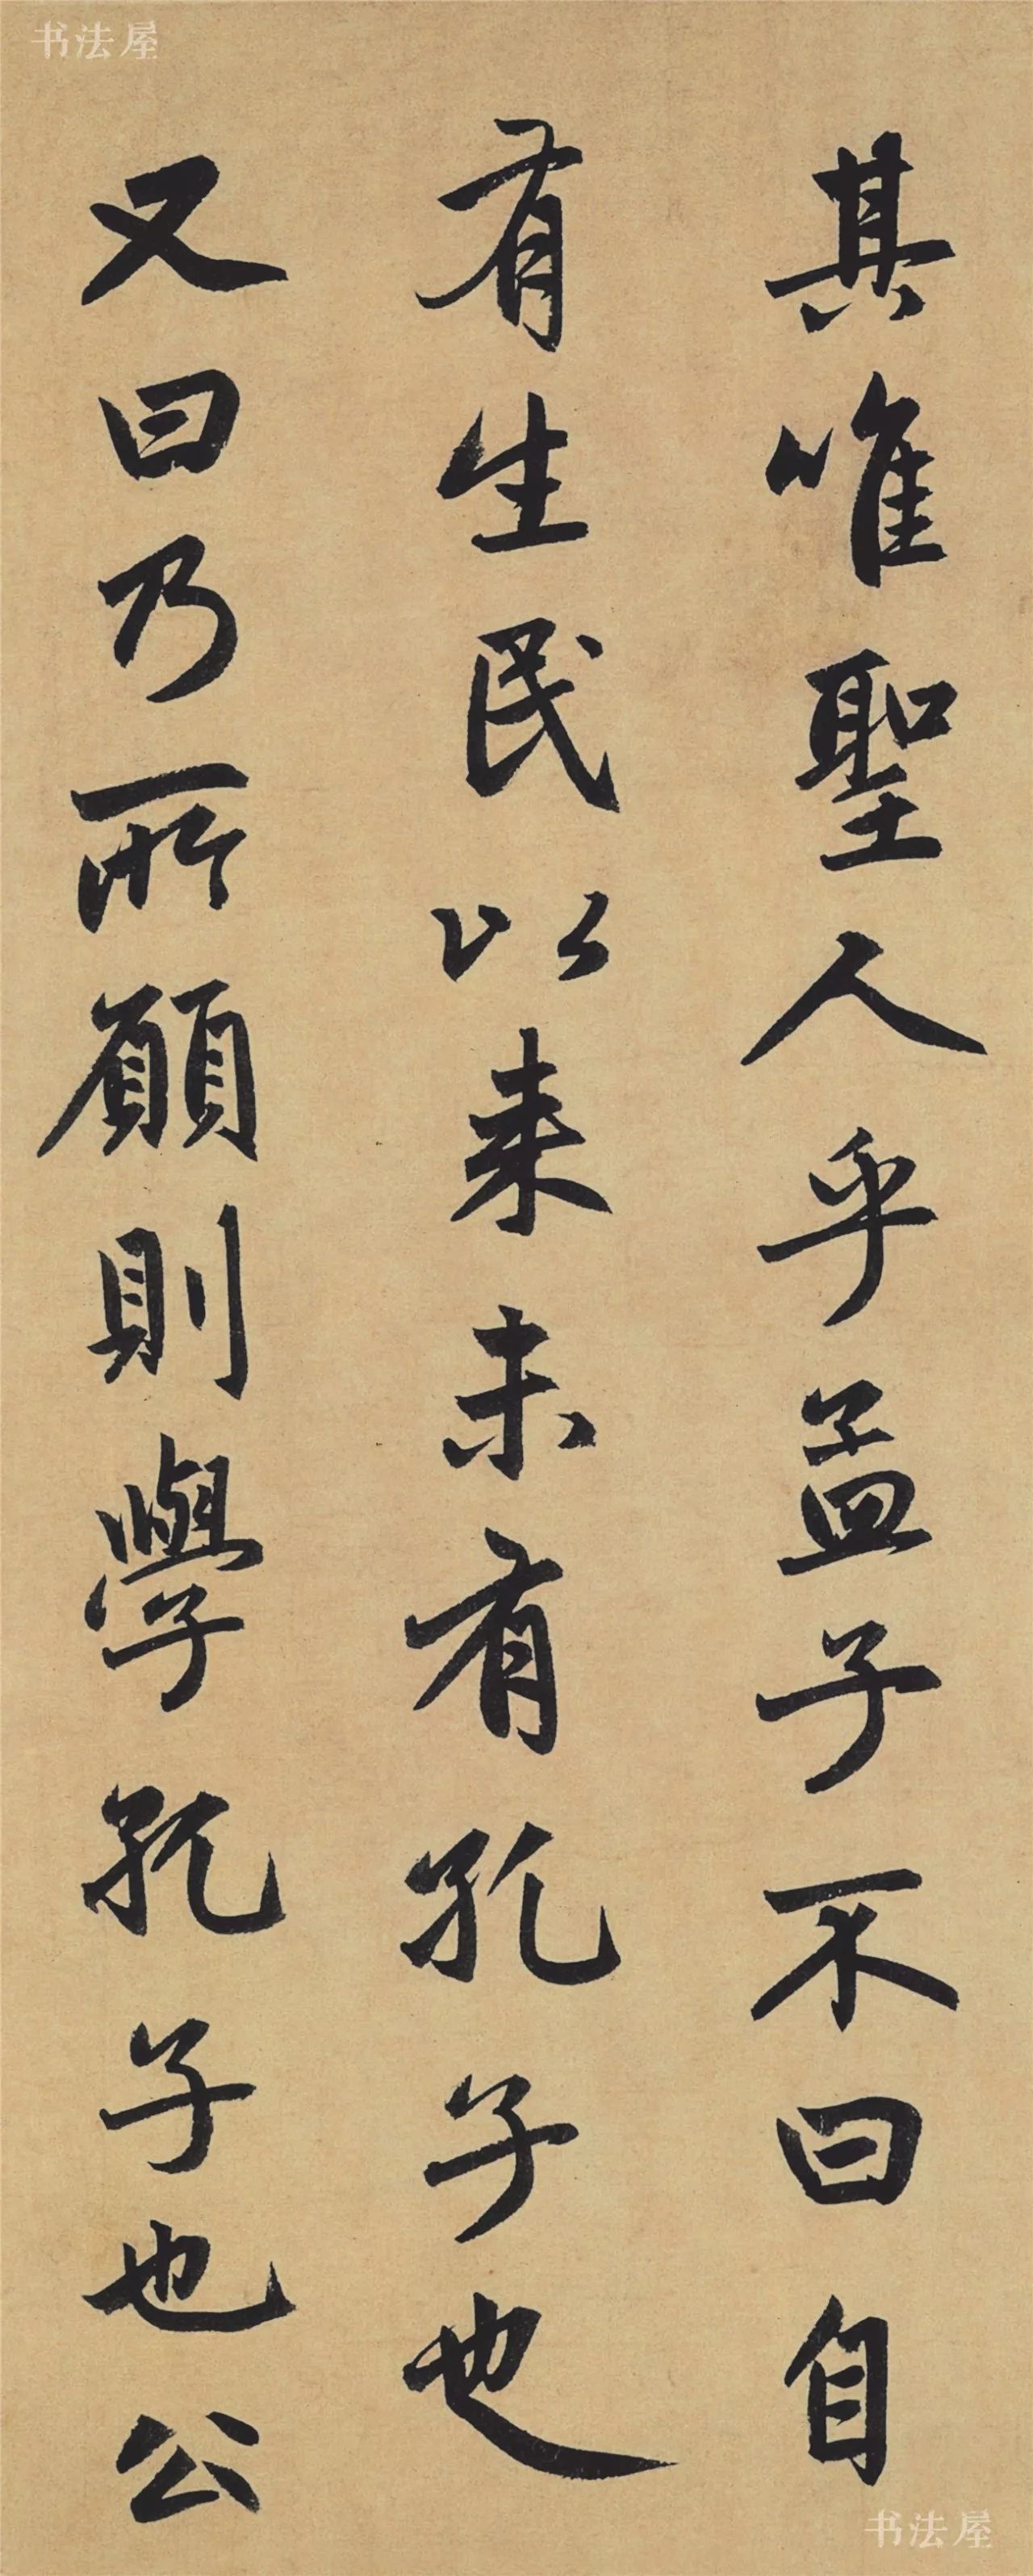 书法屋
其唯聖人乎孟子不曰自
有生民以来未有孔子也
又曰乃所願則學孔子也公
书法屋